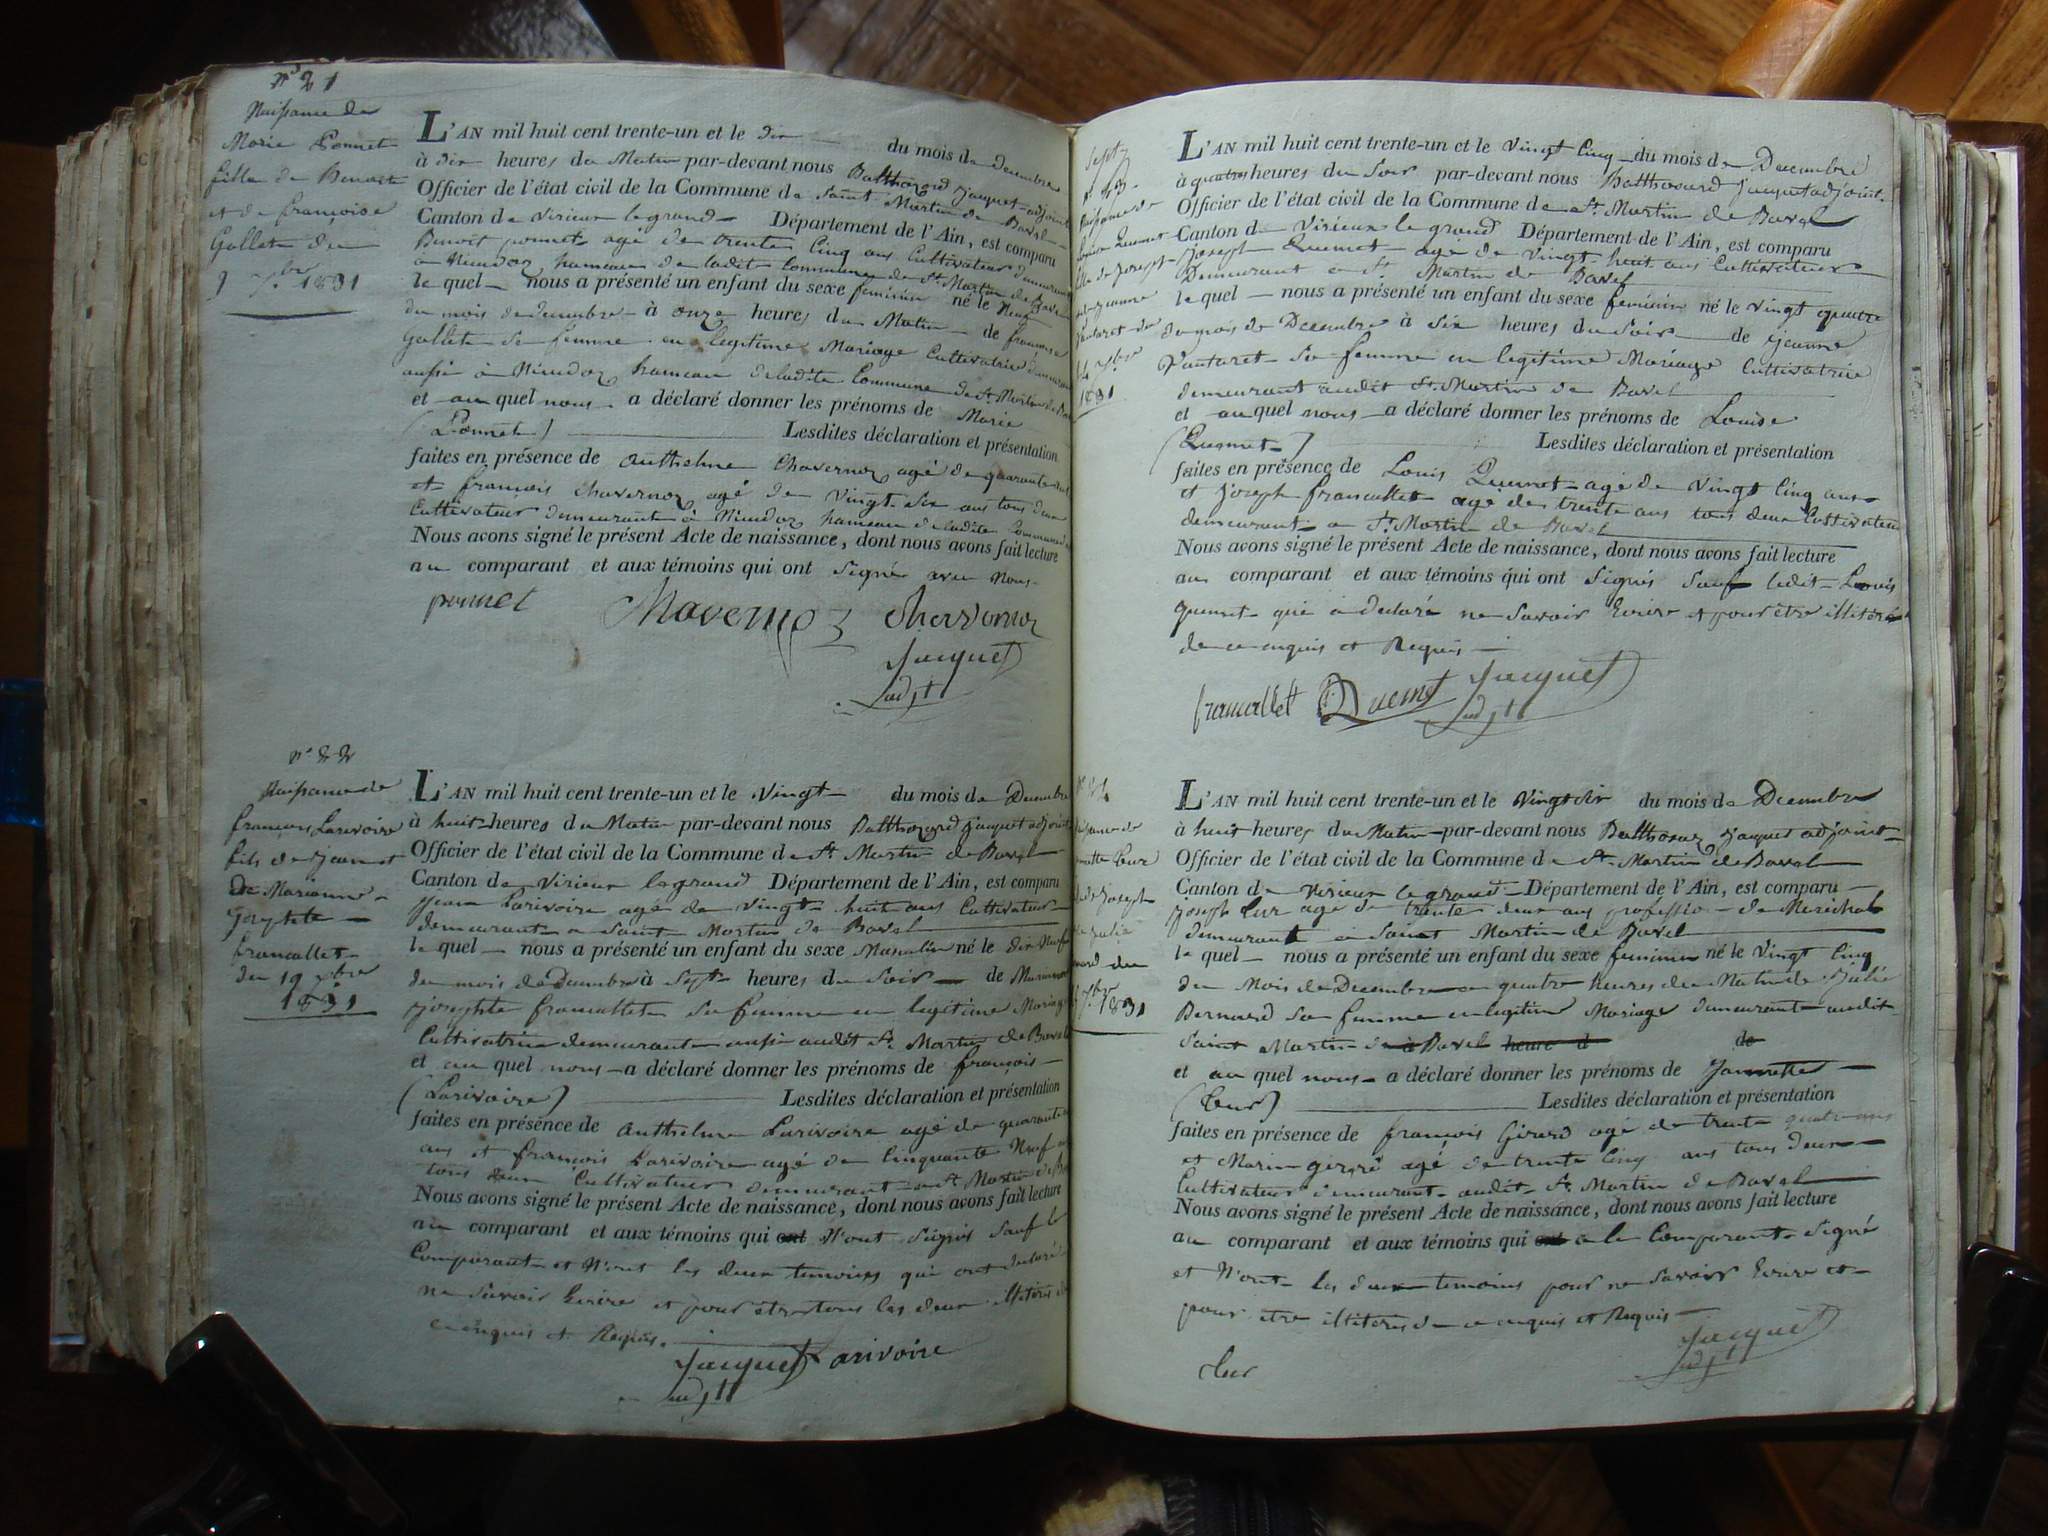 n° 21
Naissance de
Marie Ponnet
fille de Benoit
et de françoise
Gallet du
9 Xbre 1831
L'AN mil huit cent trente-un et le dix du mois de Decembre
à dix heures du Matin par-devant nous Balthazard jacquet adjoint
Officier de l'état civil de la Commune de Saint Martin de Bavel
Canton de Virieux le grand Département de l'Ain, est comparu
Benoit ponnet agé de trente Cinq ans Cultivateur demeurant
a hameau de ladite Commune de St. Martin de Bavel
le quel nous a présenté un enfant du sexe feminin né le Neuf
du mois de decembre à onze heures du Matin de françoise
Gallet sa femme en legitime Mariage Cultivatrice demeurant
aussi à hameau de ladite Commune de St. Martin de Bavel
et au quel nous a déclaré donner les prénoms de Marie
(Ponnet) Lesdites déclaration et présentation
faites en présence de anthelme Chavernoz agé de quarante
et françois Chavernoz agé de Vingt Six ans tous deux
Cultivateur demeurant à hameau de ladite Commune
Nous avons signé le présent Acte de naissance, dont nous avons fait lecture
au comparant et aux témoins qui ont Signé avec nous
ponnet Chavernoz Chavernoz
Jacquet
adjt
n° 22
Naissance de
françois Larivoire
fils de jean et
de Marianne
josephte
francallet
du 19 Xbre
1831
L'AN mil huit cent trente-un et le Vingt du mois de Decembre
à huit heures du Matin par-devant nous Balthazard jacquet adjoint
Officier de l'état civil de la Commune de St. Martin de Bavel
Canton de Virieux le grand Département de l'Ain, est comparu
jean Larivoire agé de Vingt huit ans Cultivateur
demeurant a Saint Martin de Bavel
le quel nous a présenté un enfant du sexe Masculin né le dix Neuf
du mois de Decembre à Sept heures du Soir de Marianne
josephte francallet sa femme en legitime Mariage
Cultivatrice demeurant aussi audit St. Martin de Bavel
et au quel nous a déclaré donner les prénoms de françois
(Larivoire) Lesdites déclaration et présentation
faites en présence de anthelme Larivoire agé de quarante
ans et françois Larivoire agé de Cinquante Neuf ans
tous deux Cultivateurs demeurant a St. Martin de Bavel
Nous avons signé le présent Acte de naissance, dont nous avons fait lecture
au comparant et aux témoins qui ont N'ont Signés Sauf le
Comparant et N'ont les deux temoins qui ont declaré
ne Savoir Ecrire et pour etre tous les deux illiterés de
ce enquis et Requis.
Jacquet Larivoire
adjt
Sept
n° 23
Naissance de
Louise Quemet
fille de joseph
et de jeanne
Vautaret du
24 Xbre
1831
L'AN mil huit cent trente-un et le Vingt Cinq du mois de Decembre
à quatre heures du Soir par-devant nous Balthasard jacquet adjoint
Officier de l'état civil de la Commune de St. Martin de Bavel
Canton de Virieux le grand Département de l'Ain, est comparu
joseph Quemet agé de Vingt huit ans Cultivateur
Demeurant a St. Martin de Bavel
le quel nous a présenté un enfant du sexe feminin né le Vingt quatre
du mois de Decembre à Six heures du Soir de jeanne
Vautaret sa femme en legitime Mariage Cultivatrice
demeurant audit St. Martin de Bavel
et au quel nous a déclaré donner les prénoms de Louise
(Quemet) Lesdites déclaration et présentation
faites en présence de Louis Quemet agé de Vingt Cinq ans
et joseph francallet agé de trente ans tous deux Cultivateur
demeurant a St. Martin de Bavel
Nous avons signé le présent Acte de naissance, dont nous avons fait lecture
au comparant et aux témoins qui ont Signés Sauf ledit Louis
quemet qui a declaré ne Savoir Ecrire et pour être illiteré
de ce enquis et Requis
francallet Quemet Jacquet
adjt
L'AN mil huit cent trente-un et le Vingt Six du mois de Decembre
à huit heures du Matin par-devant nous Balthasar jacquet adjoint
Officier de l'état civil de la Commune de St. Martin de Bavel
Canton de Virieux le grand Département de l'Ain, est comparu
joseph Cur agé de trente deux ans profession de Maréchal
demeurant a Saint Martin de Bavel
le quel nous a présenté un enfant du sexe feminin né le Vingt Cinq
du Mois de Decembre a quatre heures du Matin de Julie
Bernard sa femme en legitime Mariage demeurant audit
Saint Martin de à Bavel heure d de
et au quel nous a déclaré donner les prénoms de Jannette
(Cur) Lesdites déclaration et présentation
faites en présence de françois Girard agé de trente quatre ans
et Marin agé de trente Cinq ans tous deux
Cultivateurs demeurant audit St. Martin de Bavel
Nous avons signé le présent Acte de naissance, dont nous avons fait lecture
au comparant et aux témoins qui ont a le Comparant Signé
et N'ont les deux temoins pour ne Savoir Ecrire et
pour etre illiterés de ce enquis et Requis
Jacquet
adjt
Cur